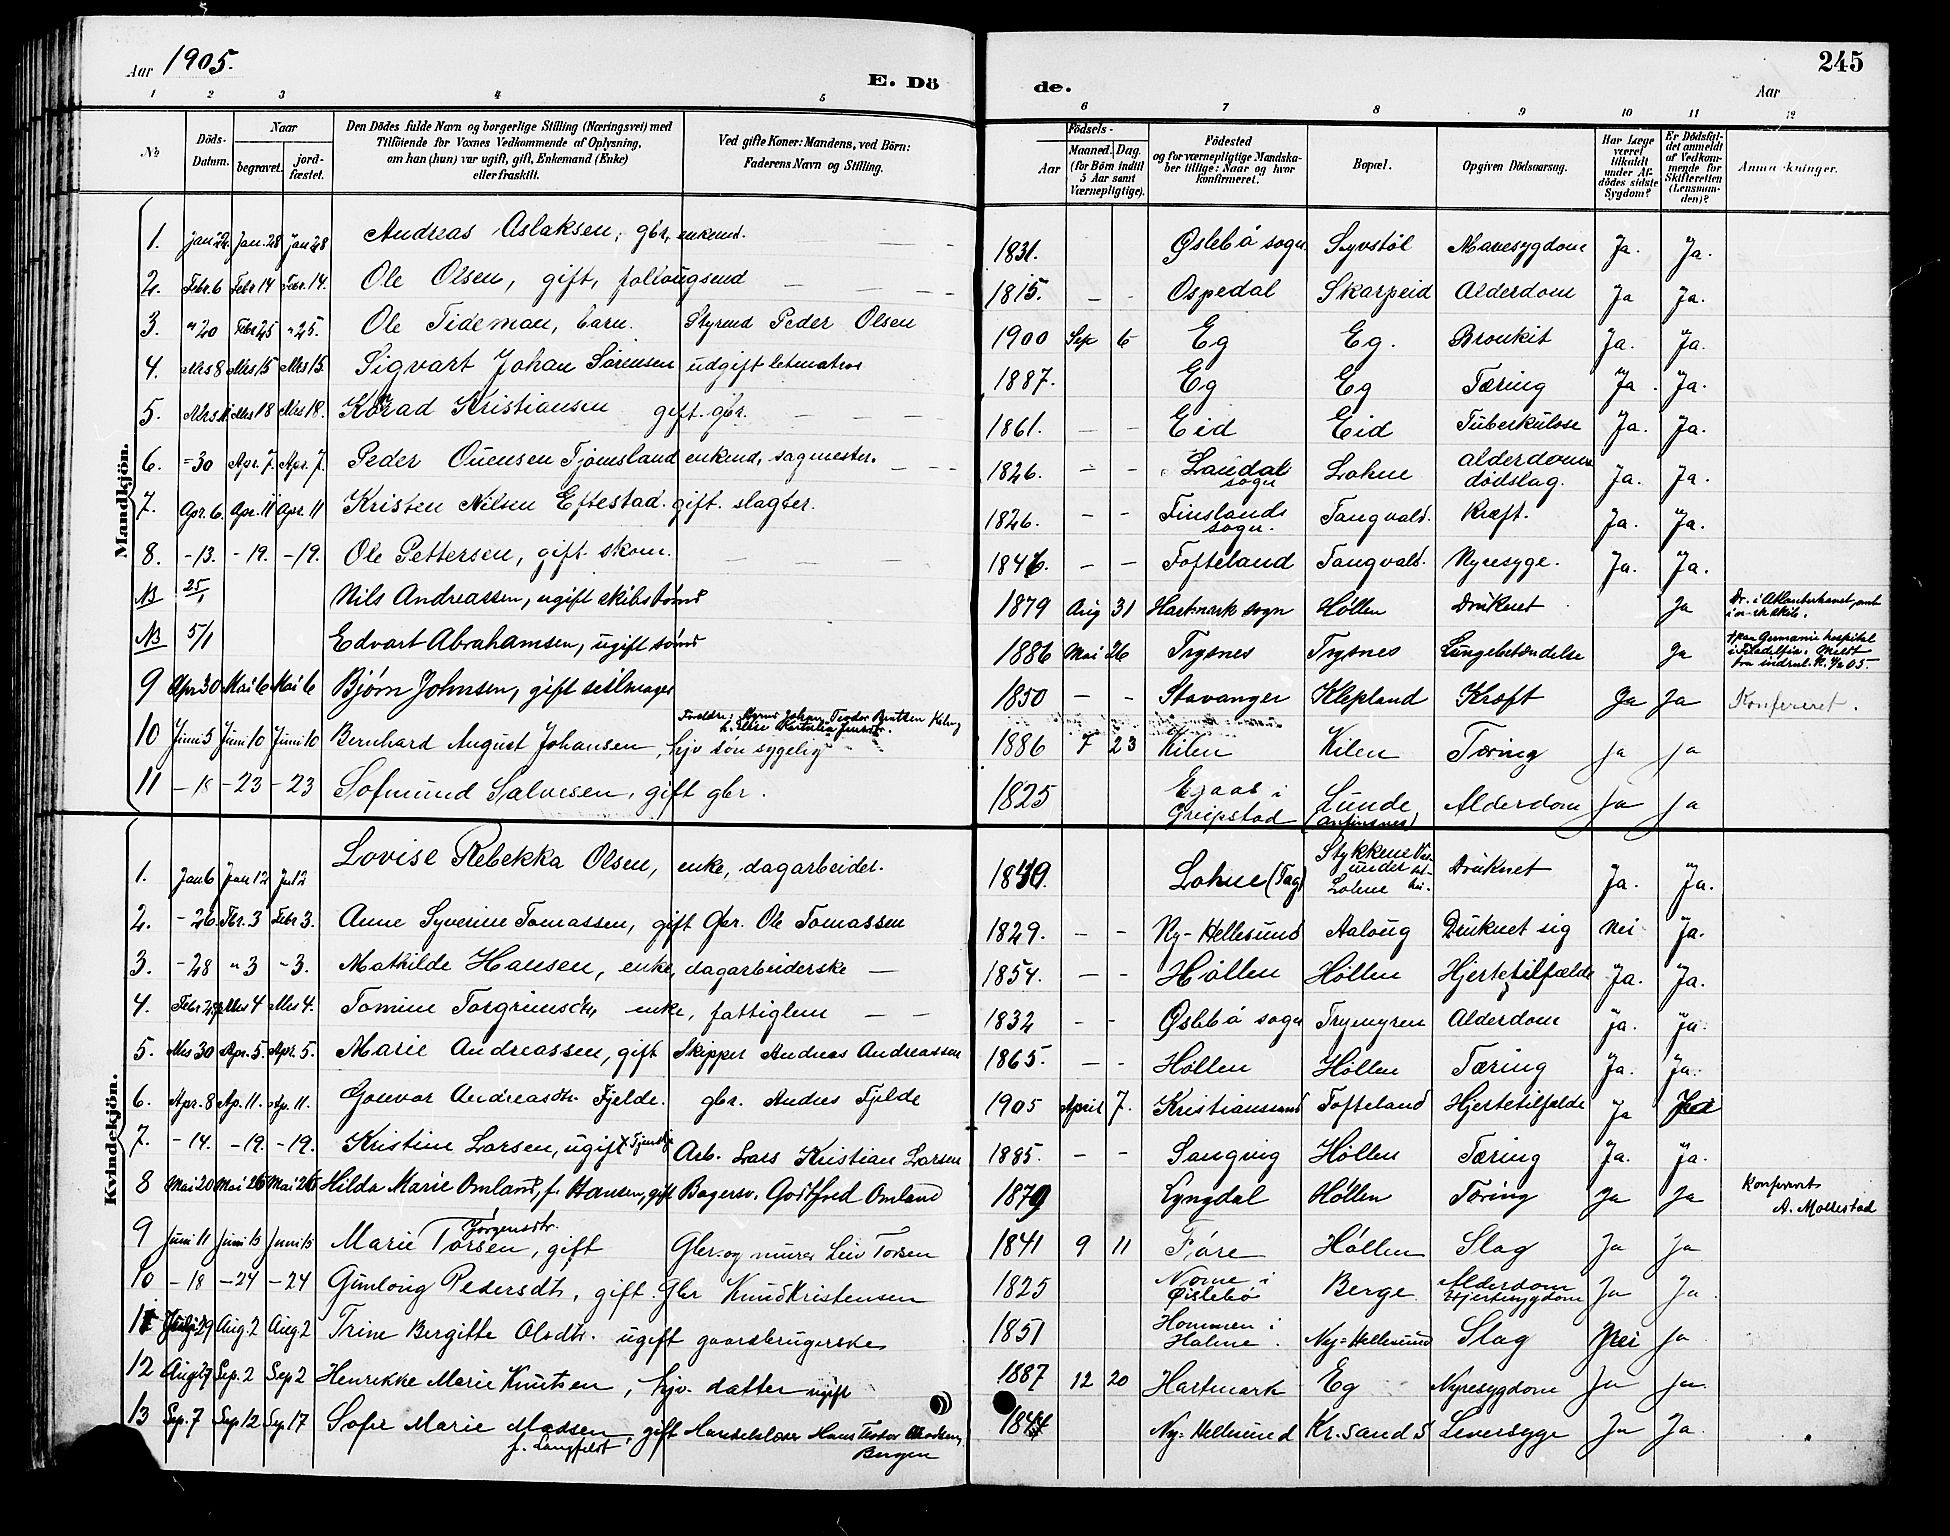 Aar 1905. E. Dö de. Aar 245
1 2 3 4 5 6 7 8 9 10 11 12
No Döds-Datum. Naar begravet. jord-fæstet. Den Dödes fulde Navn og borgerlige Stilling (Næringsvei) med Tilföiende for Voxnes Vedkommende af Oplysning, om han (hun) var ugift, gift, Enkemand (Enke) eller fraskilt. Ved gifte Koner: Mandens, ved Börn: Faderens Navn og Stilling. Födsels- Aar Maaned. Dag. (for Börn indtil 5 Aar samt Værnepligtige). Födested og for værnepligtige Mandskaber tillige: Naar og hvor konfirmeret. Bopæl. Opgiven Dödsaarsag. Har Læge været tilkaldt under Afdödes sidste Sygdom? Er Dödsfaldet anmeldt af Vedkommende for Skifteretten (Lensmanden)? Anmærkninger.
Mandkjön.
1. Jan. 22 Jan. 28 Jan 28 Andreas Aslaksen, gbr, enkemd. 1831. Øslebö sogn Syvstøl Mavesygdom Ja. Ja.
2. Febr. 6 Febr 14 Febr. 14. Ole Olsen, gift, follougsmd — 1815. — - Ospedal Skarpeid Alderdom Ja Ja.
3. " 20 Febr 25 " 25. Ole Tideman, barn. Styrmd Peder Olsen 1900 Sep 6 Eg Eg. Bronkit Ja. Ja.
4. Mrs 8 Mrs 15 Mrs 15. Sigvart Johan Sörensen udgift letmatros 1887. Eg Eg Tæring Ja. Ja.
5. Mrs 11 Mrs 18 Mrs 18. Konrad Kristiansen gift. gbr. 1861. — - Eid Eid Tuberkulose Ja. Ja.
6. - 30 Apr. 7. Apr. 7. Peder Ouensen Tjomsland enkemd, sagmester. 1826. - - Laudal sogn Lohne alderdoms dödslag. Ja. Ja.
7. Apr. 6. Apr. 11 Apr. 11 Kristen Nilsen Eftestad. gift. slagter. 1826. - - Finslands sogn. Tangvald. Kræft. Ja. Ja.
8. -13. -19. -19. Ole Pettersen, gift. skom. 1846. — — Tofteland Tangvald. Nyresyge. Ja. Ja.
NB 25/1 Nils Andreassen, ugift skibstömd 1879 Aug 31 Hartmark sogn Höllen Druknet Ja Dr. i Atlanterhavet,
NB 5/1 Edvart Abrahamsen, ugift sömd 1886 Mai 26 Trysnes Trysnes Lungebetændelse Ja paa Germania hospital i Filadelfia. Meldt
9 Apr 30 Mai 6 Mai 6 Björn Johnsen, gift seilmager 1850 — - Stavanger Klepland Kræft Ja Ja Konfereret.
10 Juni 5 Juni 10 Juni 10 Bernhard August Johansen, hjv sön sygelig 1886 7 23 Kilen Kilen Tæring ja ja
11 - 18 - 23 - 23 Sofmund Salvesen, gift gbr. 1825 Egaas i Greipstad Lunde Alderdom Ja Ja
Kvindekjön.
1. Jan 6 Jan 12 Jan 12 Lovise Rebekka Olsen, enke, dagarbeider. Lohne (Tag) Druknet Ja. Ja.
2. - 26. Fbr. 3 Febr 3. Anne Syverine Tomassen, gift Gbr. Ole Tomassen 1829. — - Ny-Hellesund Aaloug Druknet sig Nei Ja.
3. - 28 " 3 - 3. Mathilde Hansen, enke, dagarbeiderske — 1854. — - Höllen Höllen Hjertetilfælde Ja. Ja.
4. Febr 28 Mrs 4 Mrs 4. Tomine Torgrimsdtr, enke, fattiglem — — 1832 - - Øslebö sogn Tryemyren Alderdom Ja. Ja.
5. Mrs 30 Apr. 5. Apr. 5. Marie Andreassen, gift Skipper Andreas Andreassen 1865. — - Höllen Höllen Tæring Ja. Ja.
6. Apr. 8 Ap. 11. Ap. 11. Gonvor Andreasdtr Fjelde. gbr. Andres Fjelde 1905 April 7. Kristianssand Tofteland Hjertetilfælde Ja
7. - 14. - 19. - 19. Kristine Larsen, ugift Arb. Lars Kristian Larsen 1885. — - Sangvig Höllen Tæring Ja. Ja.
8 Mai 20 Mai 26 Mai 26 Hilda Marie Omland, f. Hansen, gift Bagersv. Godtfred Omland 1879 Lyngdal Höllen Tæring Ja Ja Konfereret A. Mollestad
9 Juni 11 Juni 15 Juni 15 Marie Jörgensdtr. Torsen, gift Gbr. og murer Leiv Torsen 1841 9 11 Fjöre Höllen Slag Ja Ja
10 - 18 - 24 - 24 Gunloug Pedersdtr, gift. Gbr Knud Kristensen 1825 Nome i Øislebö Berge Alderdom Hjertesygdom Ja Ja
11 Juli 29 Aug. 2 Aug 2 Trine Bergitte Olsdtr. ugift gaardbrugerske 1851 Hommen i Halme. Ny-Hellesund Slag Nei Ja
12 Aug 27 Sep. 2 Sep 2 Henrikke Marie Knutsen, hjv. datter ugift 1887 12 20 Hartmark Eg Nyresygdom Ja Ja
13 Sep. 7 Sep 12 Sep 17 Sofie Marie Madsen, f. Langfeldt, gift Bergen 1844 Ny-Hellesund Kr.sand S Leversyge Ja Ja.